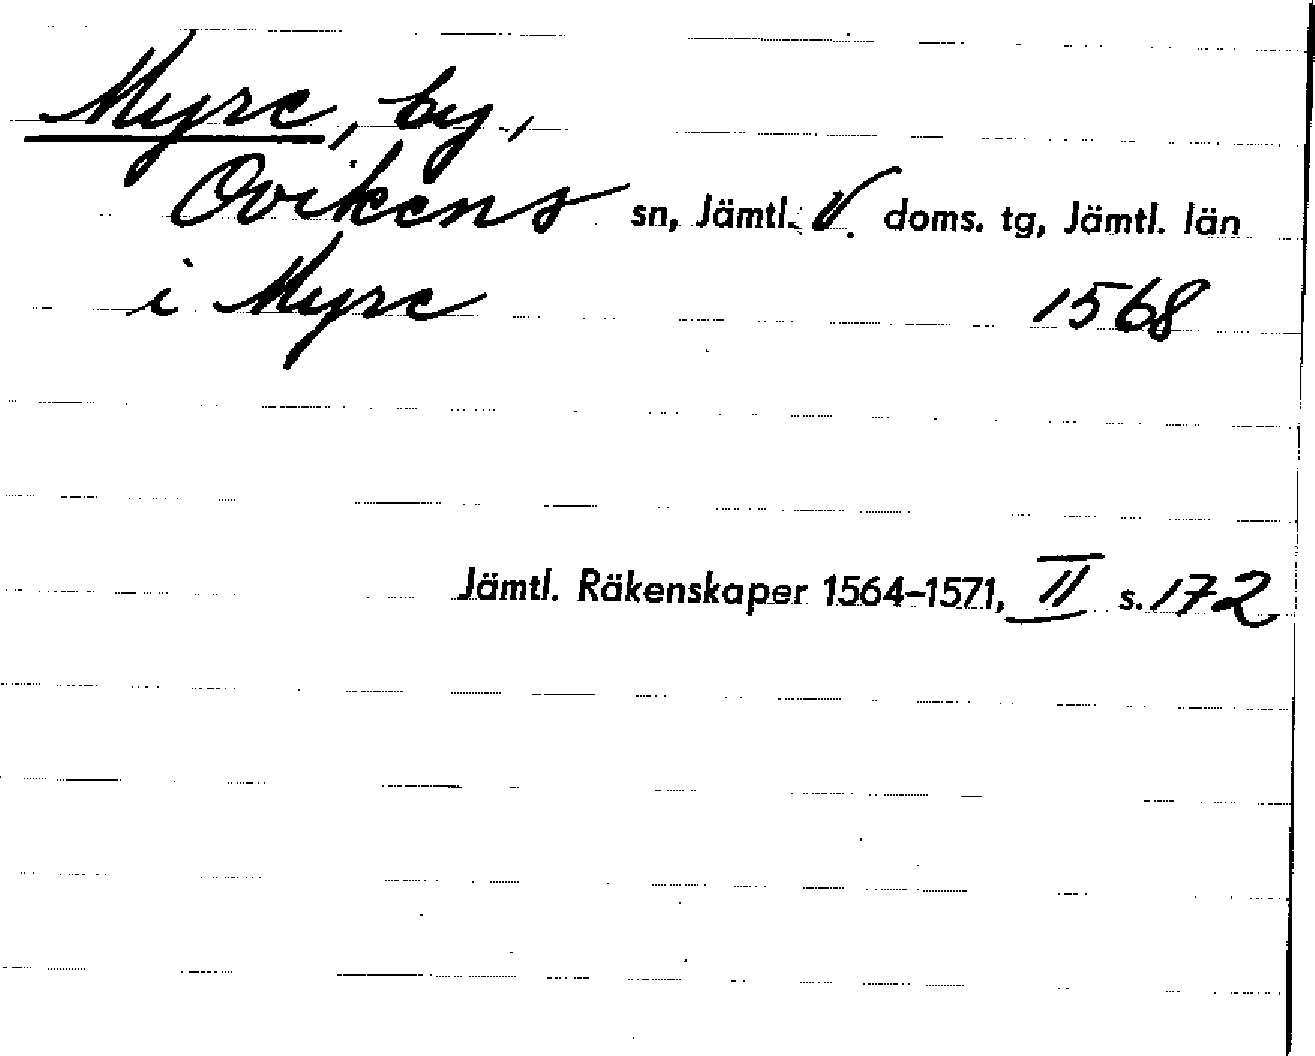 Myre, by,
Ovikens sn, Jämtl. V. doms. tg, Jämtl. län
i Myre 1568
Jämtl. Räkenskaper 1564-1571, II s. 172